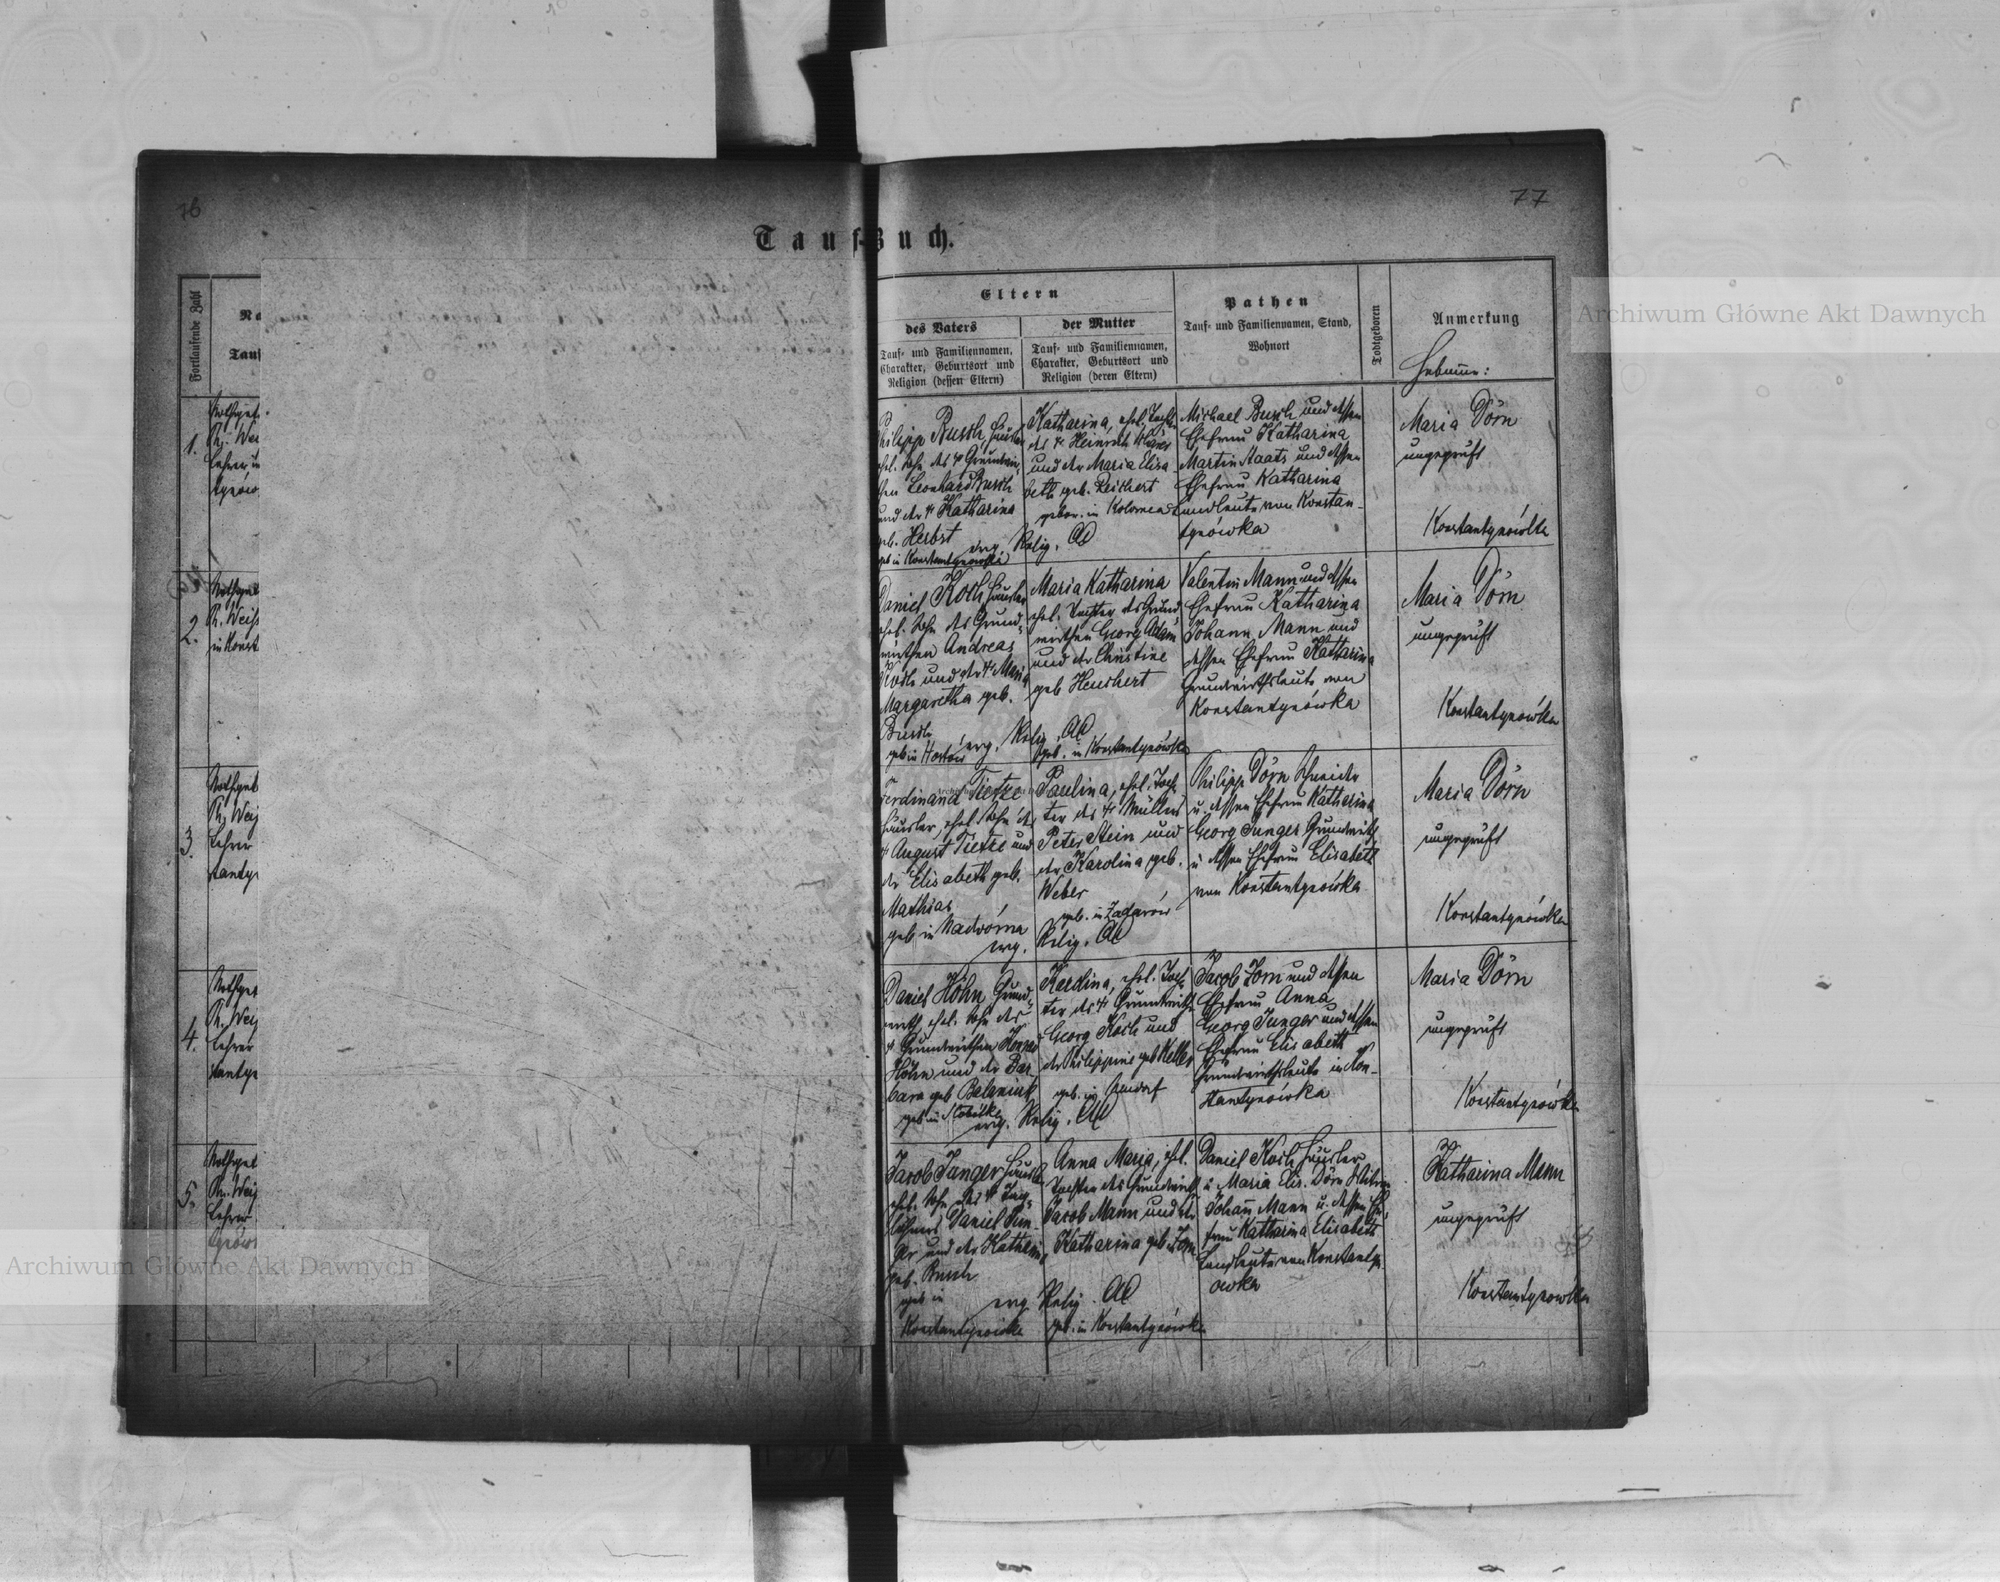 76
77
Tauf-Buch.
Fortlaufende Zahl
Na
Tauf
Eltern
des Vaters
Tauf- und Familiennamen,
Charakter, Geburtsort und
Religion (dessen Eltern)
der Mutter
Tauf- und Familiennamen,
Charakter, Geburtsort und
Religion (deren Eltern)
Pathen
Tauf- und Familiennamen, Stand,
Wohnort
Todtgeboren
Anmerkung
Hebamme:
1.
Nothget
Ph. Wei
Lehrer in
tynów
Philipp Busch, Häusler
ehel. Sohn des
Leonhard Busch
und der Katharina
geb. Herbst
geb in Konstantynówka
evg. Relig. AC
Katharina, ehel. Tocht
des Heinrich
und der Maria Elisa
beth geb. Reichert
gebor. in Kolomea
Michael Busch und dessen
Ehefrau Katharina
Martin Staats und dessen
Ehefrau Katharina
Landleute von Konstan-
tynówka
Maria Dörn
ungeprüft
Konstantynówka
2.
Nothget
Ph. Weis
in Konst
Daniel Koch Häusler
ehel. Sohn des Grund-
wirthen Andreas
Koch und der Maria
Margaretha geb.
Busch
geb in
evg. Relig. AC
Maria Katharina
ehel. Tochter des Grund
wirthen Georg Adam
und der Christine
geb Heuchert
geb. in Konstantynówka
Valentin Mann und dessen
Ehefrau Katharina
Johann Mann und
dessen Ehefrau Katharina
Grundwirthsleute von
Konstantynówka
Maria Dörn
ungeprüft
Konstantynówka
3.
Nothget
Ph. Wei
Lehrer
stanty
Ferdinand Tietze
Häusler, ehel. Sohn des
August Tietze und
der Elisabeth geb.
Mathias
geb in Nadwórna
evg. Relig. AC
Paulina, ehel. Toch
ter des Müllers
Peter Stein und
der Karolina geb.
Weber
geb. in
Philipp Dörn Schneider
u. dessen Ehefrau Katharina
Georg Junger Grundwirth
u dessen Ehefrau Elisabeth
von Konstantynówka
Maria Dörn
ungeprüft
Konstantynówka
4.
Nothget
Ph. Wei
Lehrer
stanty
Daniel Höhn Grund-
wirth, ehel. Sohn des
Grundwirthen Konrad
Höhn und der Bar-
bara geb Balaniuk
geb in
evg. Relig. AC
Karolina, ehel. Toch
ter des Grundwirths
Georg Koch und
der Philippine geb Keller
geb. in
Jacob Jom und dessen
Ehefrau Anna
Georg Junger und dessen
Ehefrau Elisabeth
Grundwirthsleute in Kon-
stantynówka
Maria Dörn
ungeprüft
Konstantynówka
5.
Nothget
Ph. Wei
Lehrer
tynów
Jacob Junger Häusler
ehel. Sohn des Tag-
löhners Daniel Jun-
ger und der Katharina
geb. Busch
geb in
Konstantynówka
evg. Relig. AC
Anna Maria, ehel.
Tochter des Grundwirth
Jacob Mann und der
Katharina geb Jom
geb. in Konstantynówka
Daniel Koch Häusler
u Maria Elis. Dörn Witwe
Johann Mann u. dessen Ehe
frau Katharina Elisabeth
Landleute von Konstantyn
owka
Katharina Mann
ungeprüft
Konstantynówka
Archiwum Główne Akt Dawnych
Archiwum Główne Akt Dawnych